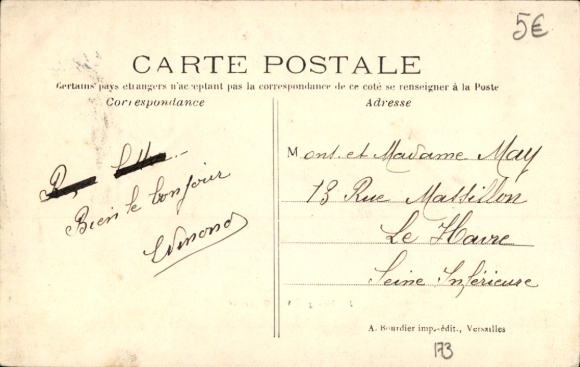 5€
CARTE POSTALE
Certains pays etrangers n'acceptant pas la correspondance de ce coté se renseigner à la Poste
Correspondance
Adresse
Bien le bonjour
Mons. et Madame May
13 Rue Massillon
Le Havre
Seine Inférieure
A. Bourdier imp.-édit., Versailles
173